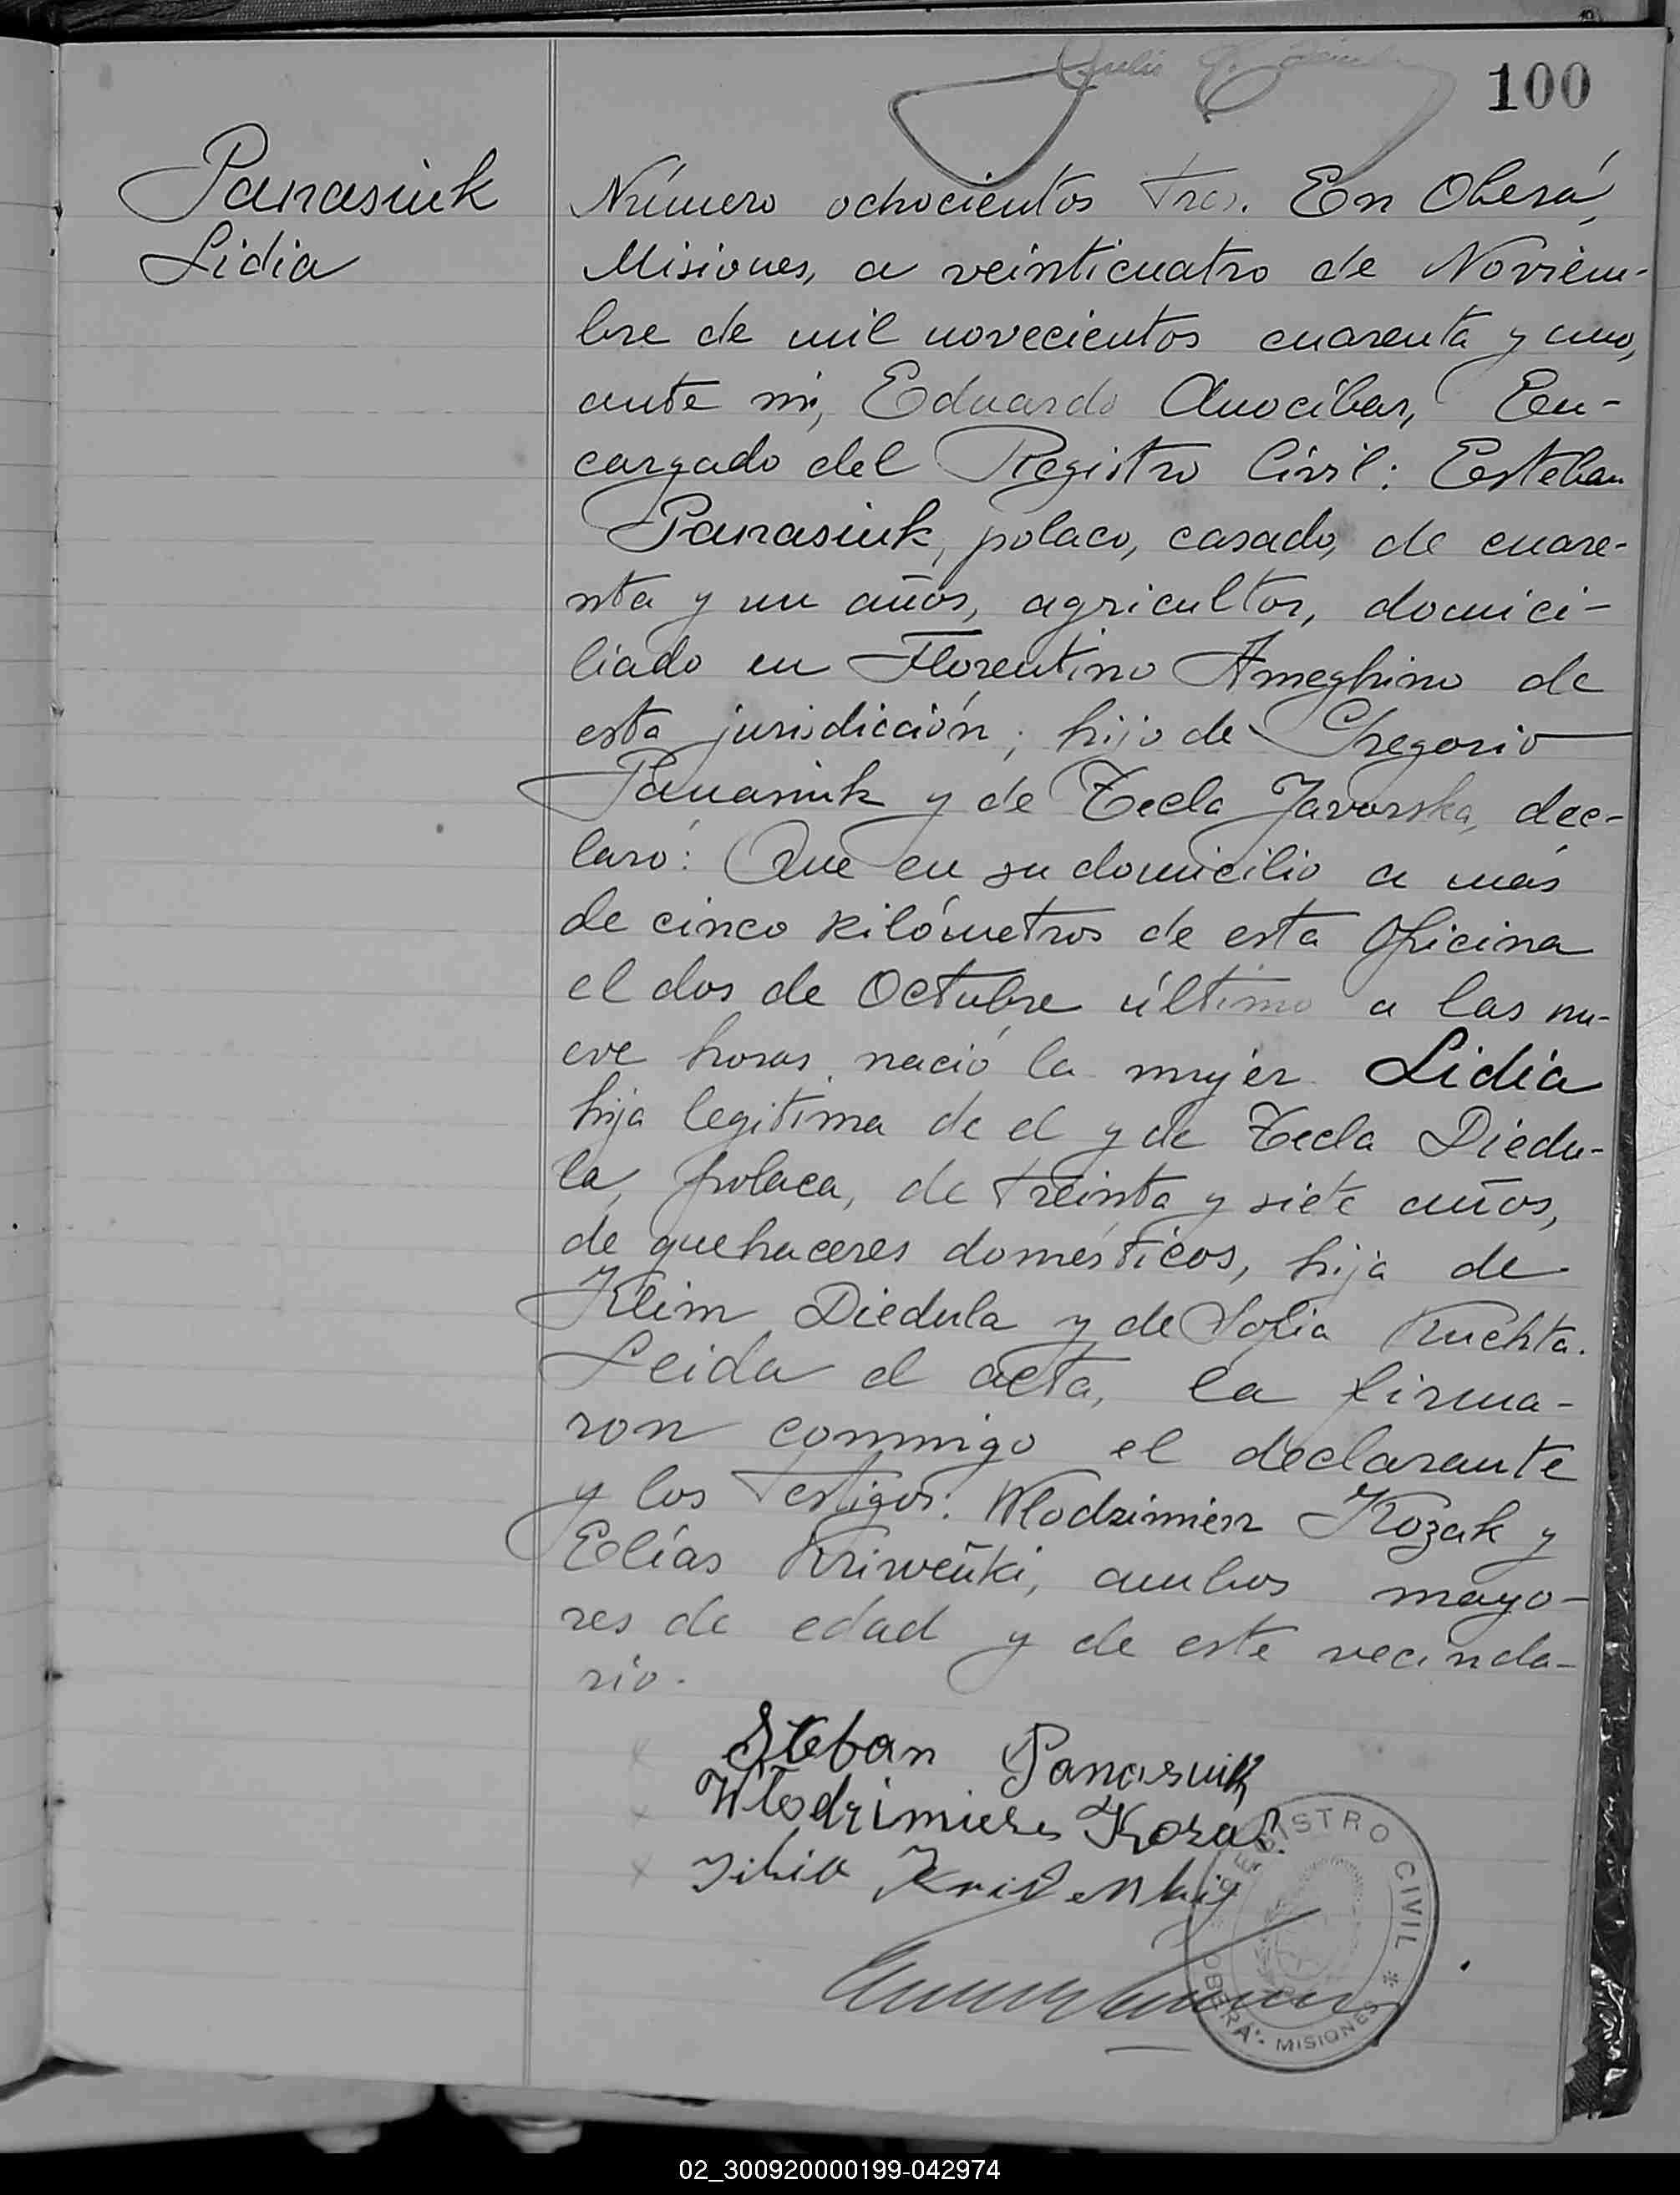 100
Panasiuk
Lidia
Número ochocientos tres. En Oberá,
Misiones, a veinticuatro de Noviem-
bre de mil novecientos cuarenta y uno,
ante mi, Eduardo Anocíbar, En-
cargado del Registro Civil: Esteban
Panasiuk, polaco, casado, de cuare-
nta y un años, agricultor, domici-
liado en Florentino Ameghino de
esta jurisdicción; hijo de Gregorio
Panasiuk y de Tecla Javorska, dec-
laró: Que en su domicilio a más
de cinco kilómetros de esta Oficina
el dos de Octubre último a las nu-
eve horas nació la mujer Lidia
hija legitima de el y de Tecla Diedu-
la, polaca, de treinta y siete años,
de quehaceres domésticos, hija de
Klim Diedula y de Sofia Kuchta.
Leida el acta, la firma-
ron conmigo el declarante
y los testigos: Wlodzimierz Kozak y
Elías Kriweñki, ambos mayo-
res de edad y de este vecinda-
rio.
Steban Panasiuk
Włodzimierz Kozak
REGISTRO CIVIL * OBERA - MISIONES
02_300920000199-042974